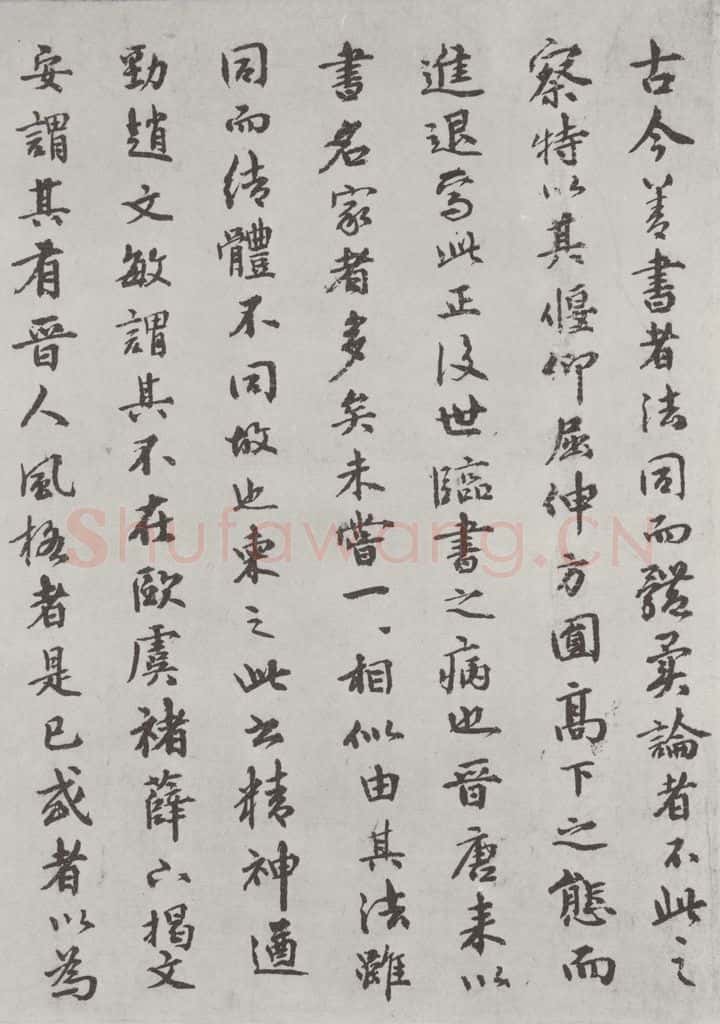 古今善書者法同而體異論者不此之
察特以其偃仰屈伸方圓高下之態而
進退焉此正後世臨書之病也晉唐来以
書名家者多矣未嘗一、相似由其法雖
同而結體不同故也東之此書精神遒
勁趙文敏謂其不在歐虞褚薛下揭文
安謂其有晉人風格者是已或者以為
Shufawang.CN